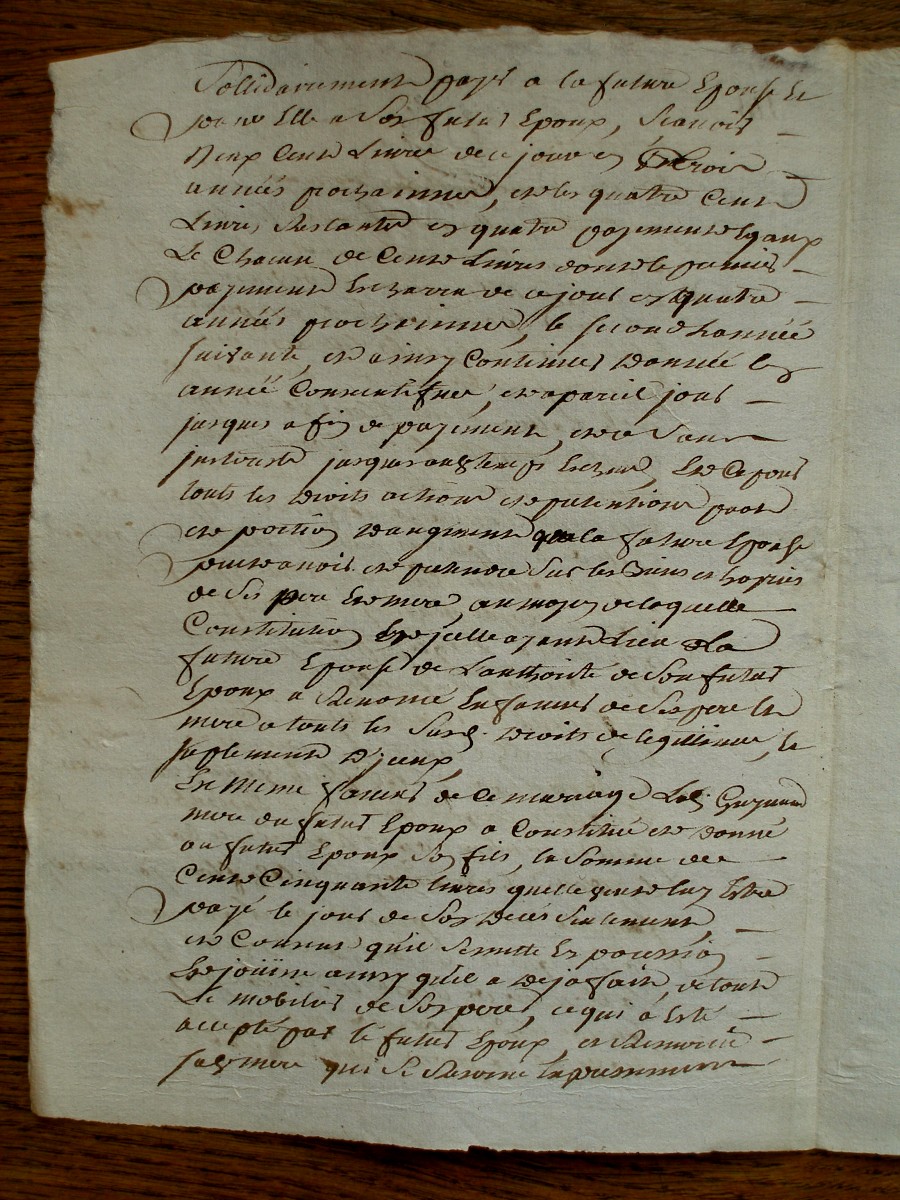 Sollidairement payer a la future Epouse et
pour Elle a son futur Epoux, scavoir
Deux Cent Livres de ce jour en trois
années prochaines, et les quatre Cent
Livres Restantes en quatre payements Egaux
de Chacun de Cent Livres dont le premier
payement Echerra de ce jour en quatre
années prochaines, le second L'année
suivante, et ainsy Continuer d'année En
année Consecutives, et a pareil jour
jusques a fin de payement, et ce sans
jnterests jusques aux termes Echeus, Et Ce pour
touts les droits actions et pretentions part
et portion d'augment que la future Epouse
peut avoir et pretendre sur les Biens et hoiries
de ses pere Et mere, au moyen de laquelle
Constitution Et jcelle ayant Lieu la
future Epouse de L'authorité de son futur
Epoux a Renoncé En faveur de ses pere Et
mere a touts les susd. droits de legitime, et
suplement D'jceux,
En meme faveur de Ce mariage Lad.
mere du futur Epoux a Constitué et donné
au futur Epoux son fils, la somme de
Cent Cinquante livres quelle veut luy Estre
payé le jour de son deces seulement,
et Consent qu'il se mette En possession
Et jouisse ainsy qu'il a deja fait, de tout
Le mobilier de son pere, ce qui a Esté
accepté par le futur Epoux, et Remercie
sad. mere qui se Reserve